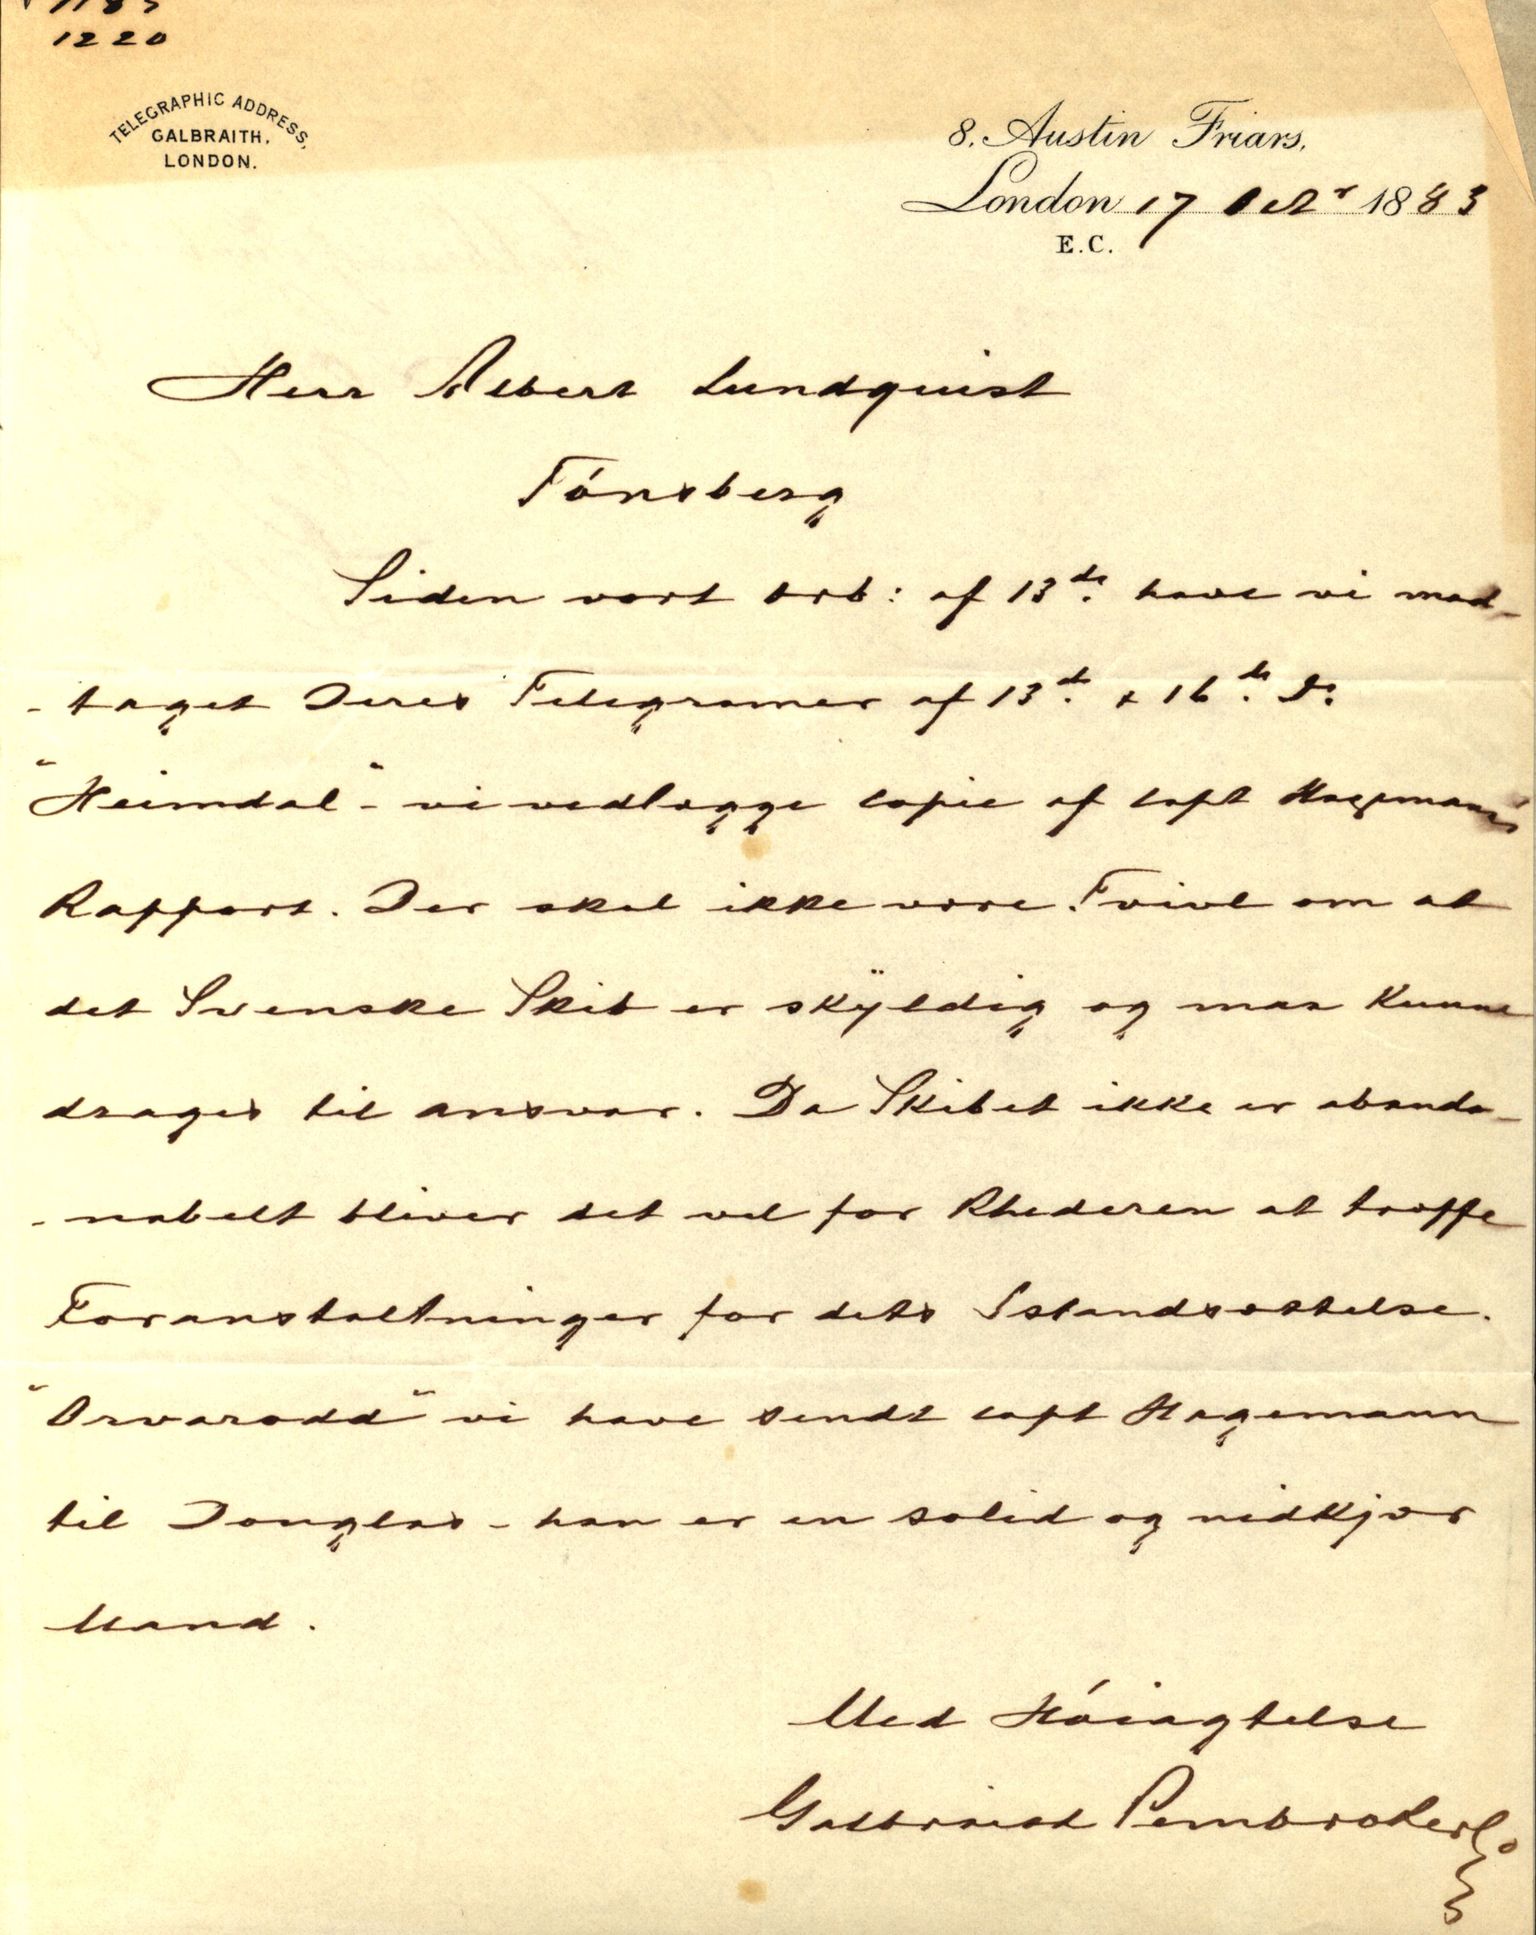 1220
TELEGRAPHIC ADDRESS,
GALBRAITH,
LONDON.
8, Austin Friars,
London 17 Octr 1883
E.C.
Herr Albert Lundquist
Tónsberg
Siden vort ærb: af 13de have vi mod-
-taget Deres Telegramer af 13de & 16de Ds
"Heimdal" - vi vedlægge copie af Capt Hagemanns
Rapport. Der skal ikke være Tvivl om at
det Svenske Skib er skÿldig og maa kunne
drages til ansvar. Da Skibet ikke er abando-
-nabelt bliver det vel for Rhederen at træffe
Foranstaltninger for dets Istandsættelse.
"Orvarodd" vi have sendt Capt Hagemann
til Douglas - han er en solid og nidkjær
Mand.
Med Hóiagtelse
Galbraith Pembroke & Co